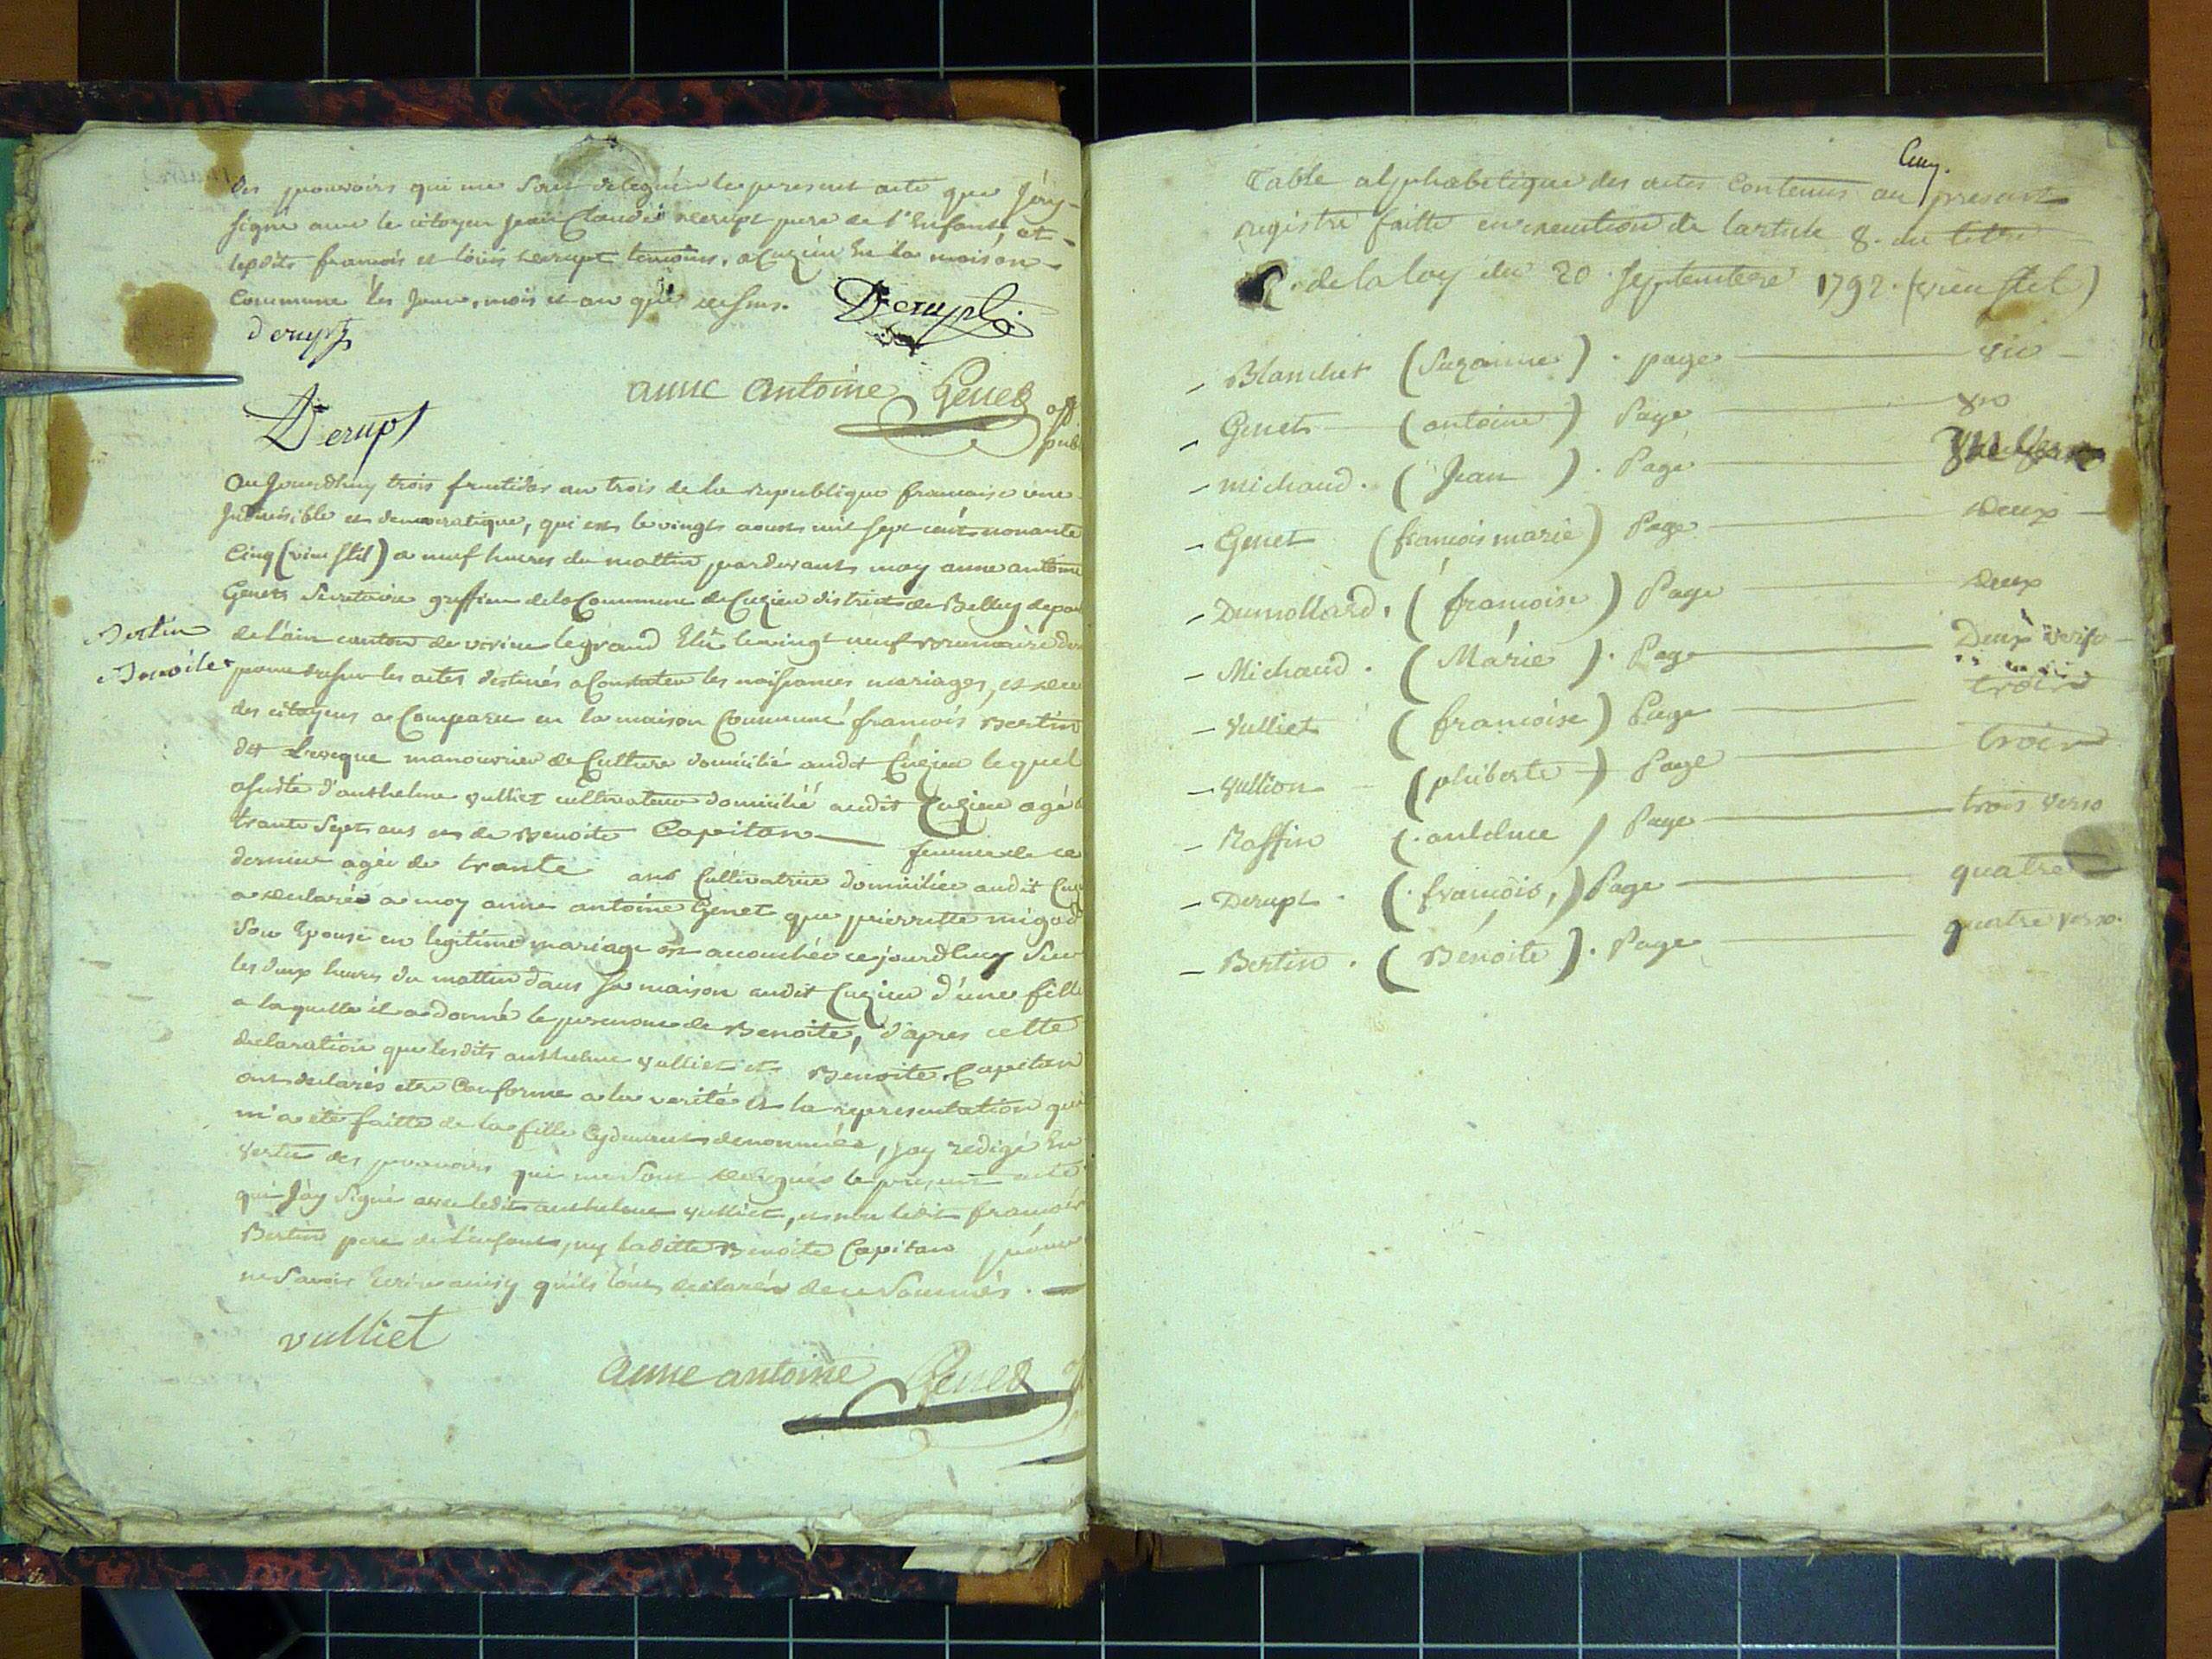 des pouvoirs qui me sont delegués le present acte que j'ay
signé avec le citoyen Jean Claude derupt pere de l'Enfant, et
lesdits francois et loüis derupt temoins, a Cuzieu En la maison
Commune les Jour, mois et an que dessus.
Derupt
derupt
anne antoine Genet off
publ
Derupt
Bertin
Benoite
aujourdhuy trois fructidor an trois de la republique francaise une
Indivisible et democratique, qui est le vingt aoust mil sept cent nonante
Cinq (vieu stil) a neuf heures du mattin pardevant moy anne antoine
Genet Secretaire greffier de la Commune de Cuzieu district de Belley depar
de l'ain canton de virieu legrand Elû le vingt neuf brumaire der
pour dresser les actes destinés a Constater les naissances mariages, et dece
des citoyens a Comparu en la maison Commune francois Bertin
dit manouvrier de Culture domicilié audit Cuzieu lequel
assisté d'anthelme vulliet cultivateur domicilié audit Cuzieu agé d
trante sept ans et de Benoite Capitan femme de ce
dernier agée de trante ans Cultivatrice domiciliée audit Cuz
a declaré a moy anne antoine Genet que pierrette migod
son Epouse en legitime mariage est accouchée cejourdhuy sur
les deux heures du mattin dans sa maison audit Cuzieu d'une fille
a laquelle il a donné le prenom de Benoite, d'apres cette
declaration que lesdits anthelme vulliet et Benoite Capitan
ont declarés etre Conforme a la verité et la representation qui
m'a eté faitte de la fille Cydevant denommée, jay redigé En
vertu des pouvoirs qui me sont delegués le present acte
que Jay signé avec ledit anthelme vulliet, et non ledit francois
Bertin pere de l'enfant, ny laditte Benoite Capitan pour
ne savoir Ecrire ainsy quils l'ont declarés de ce sommés.
vulliet
anne antoine Genet
Cinq.
Table alphabetique des actes Contenus au present
registre faitte en execution de larticle 8. du tittre
2. de la loy du 20 septembre 1792. (vieu stil)
_ Blanchet (Suzanne). page
_ Genet (antoine) Page
_ michaud. (Jean). Page
_ Genet (francois marie) Page deux
_ Dumollard, (francoise) Page deux
_ Michaud. (Marie). Page Deux verso
_ Vulliet (francoise) Page trois
_ Vullion (phiberte) Page trois
_ Raffin (antelme) Page trois verso
_ Derupt. (francois,) Page quatre
_ Bertin. (Benoite). Page quatre verso.